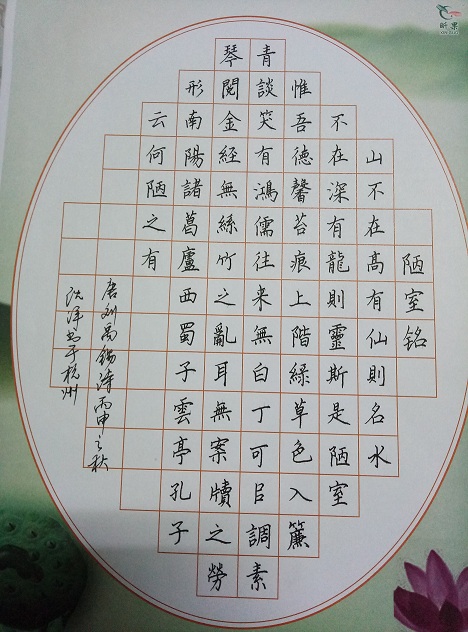 陋室铭
山不在髙有仙則名水
不在深有龍則靈斯是陋室
惟吾德馨苔痕上階綠草色入簾
青談笑有鴻儒往来無白丁可㠯調素
琴閱金經無絲竹之亂耳無案牘之勞
形南陽諸葛廬西蜀子雲亭孔子
云何陋之有
唐刘禹锡诗丙申之秋
沈泽书于杭州